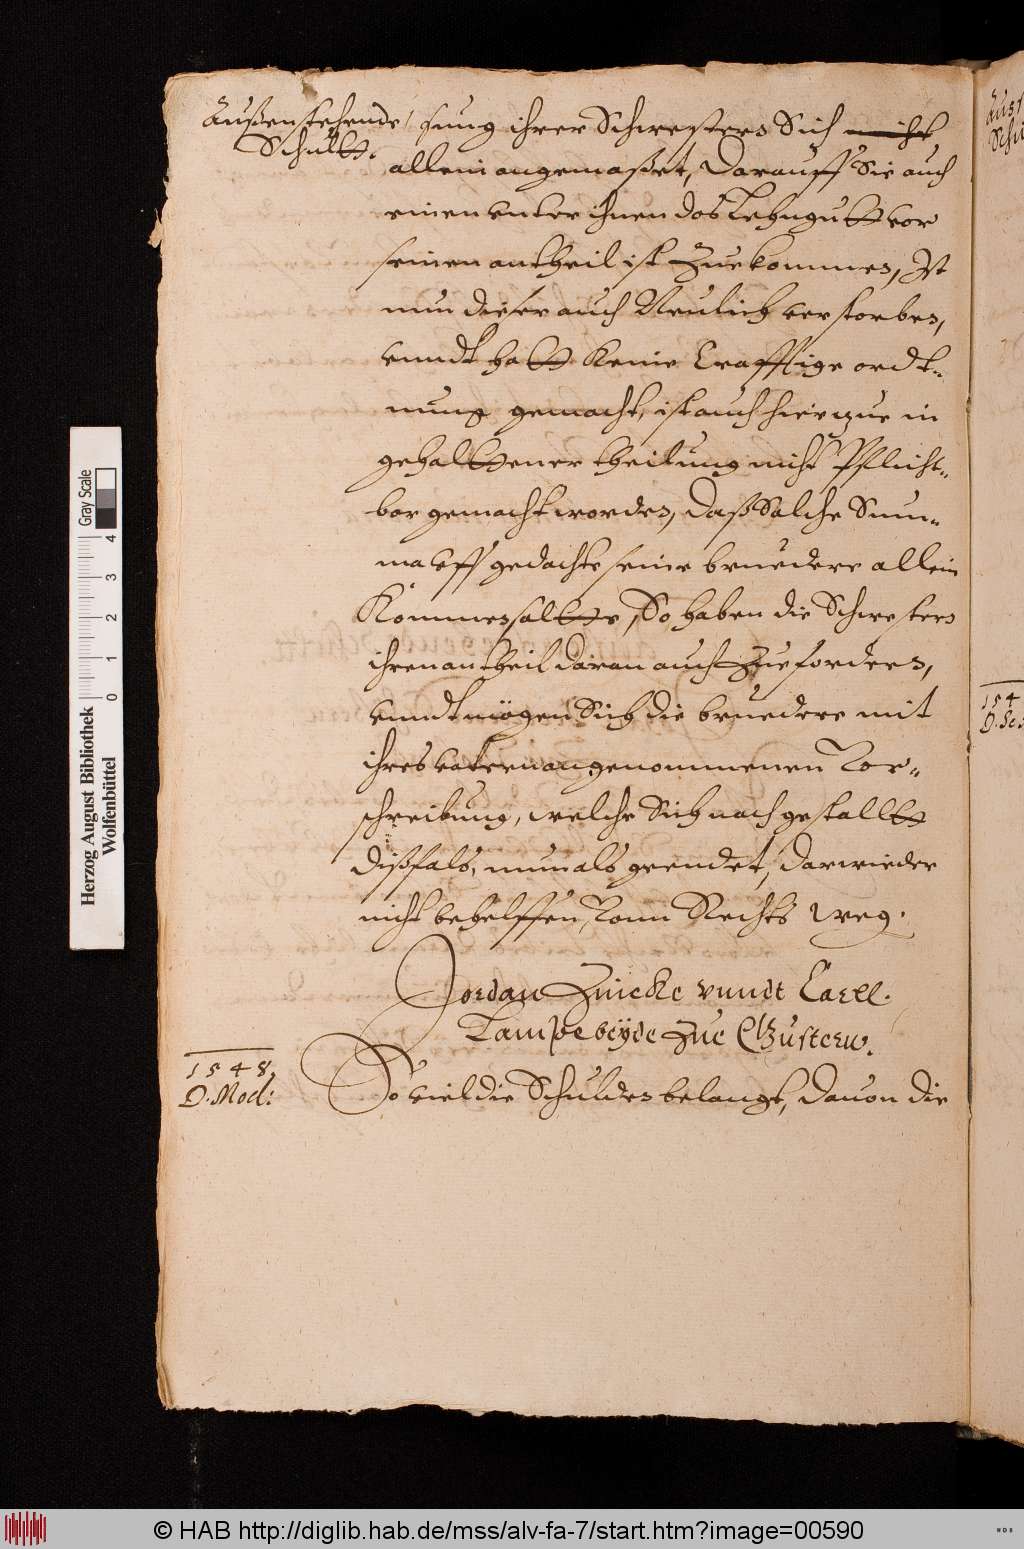 Außenstehende
Schultt.
sung ihrer Schwestern Sich nicht
allein angemaßet, Darauff Sie auch
einen unter ihnen das Lehngutt vor
seinen antheil ist Zuekommen, Ist
nun dieser auch Neulich verstorben,
unndt hatt Keine Crafftige ordt-
nung gemacht, ist auch hierzue in
gehalttener theilung nicht Pflicht-
bar gemacht worden, Daß Solche Sum-
ma uff gedachte seine bruedere allein
Kommen soltte, So haben die Schwestern
ihren antheil daran auch Zue fordern,
unndt mögen Sich die bruedere mit
ihres vattern angenommenen Vor-
schreibung, welche Sich nach gestallt
dißfals, nun als geendet, darwieder
nicht behelffen, Vonn Rechts weg.
Jordan Zuicke vnndt Carll
Lampe beÿde Zue Güsterw.
1548.
D. Mod:
So viel die Schulden belangt, Dauon die
154
Herzog August Bibliothek
Wolfenbüttel
0 1 2 3 4
Gray Scale
© HAB http://diglib.hab.de/mss/alv-fa-7/start.htm?image=00590